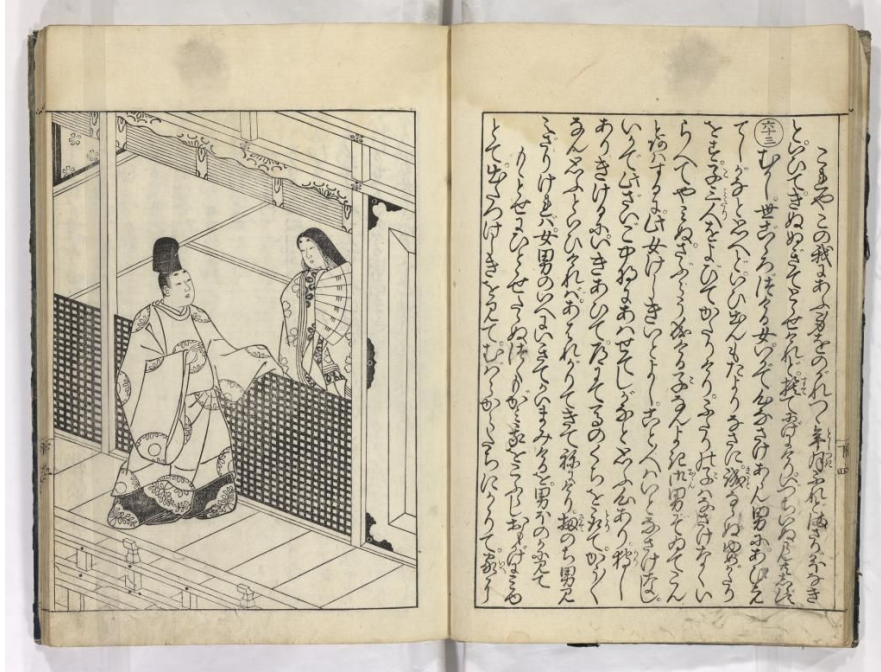 これやこの我にあふみをのがれつゝ年月ふれどまさりがほなき
といひてきぬぬぎてとらせけれど捨てにげにけりいづちいぬらんともしらず
六十三 むかし世ごゝろつける女いかで心なさけあらん男にあひえ
てしがなと思へどいひ出んもたよりなさに誠ならぬ夢がたり
をす子三人をよびてかたりけりふたりの子はなさけなくい
らへてやみぬさぶらう成ける子なんよき御男ぞいでこん
とあはするに此女けしきいとよしこと人はいとなさけなし
いかで此ざい五中将にあはせてしがなと思ふ心あり狩し
ありきけるにいきあひて道にてむまのくちをとりてかうかく
なん思ふといひければあはれがりてきてねにけり扨のち男見
えざりければ女男のいへにいきてかいまみけるを男ほのかに見て
もゝとせにひとゝせたらぬつくもがみ我をこふらしおもかげにみゆ
とて出たつけしきを見てむばらからたちにかゝりて家に